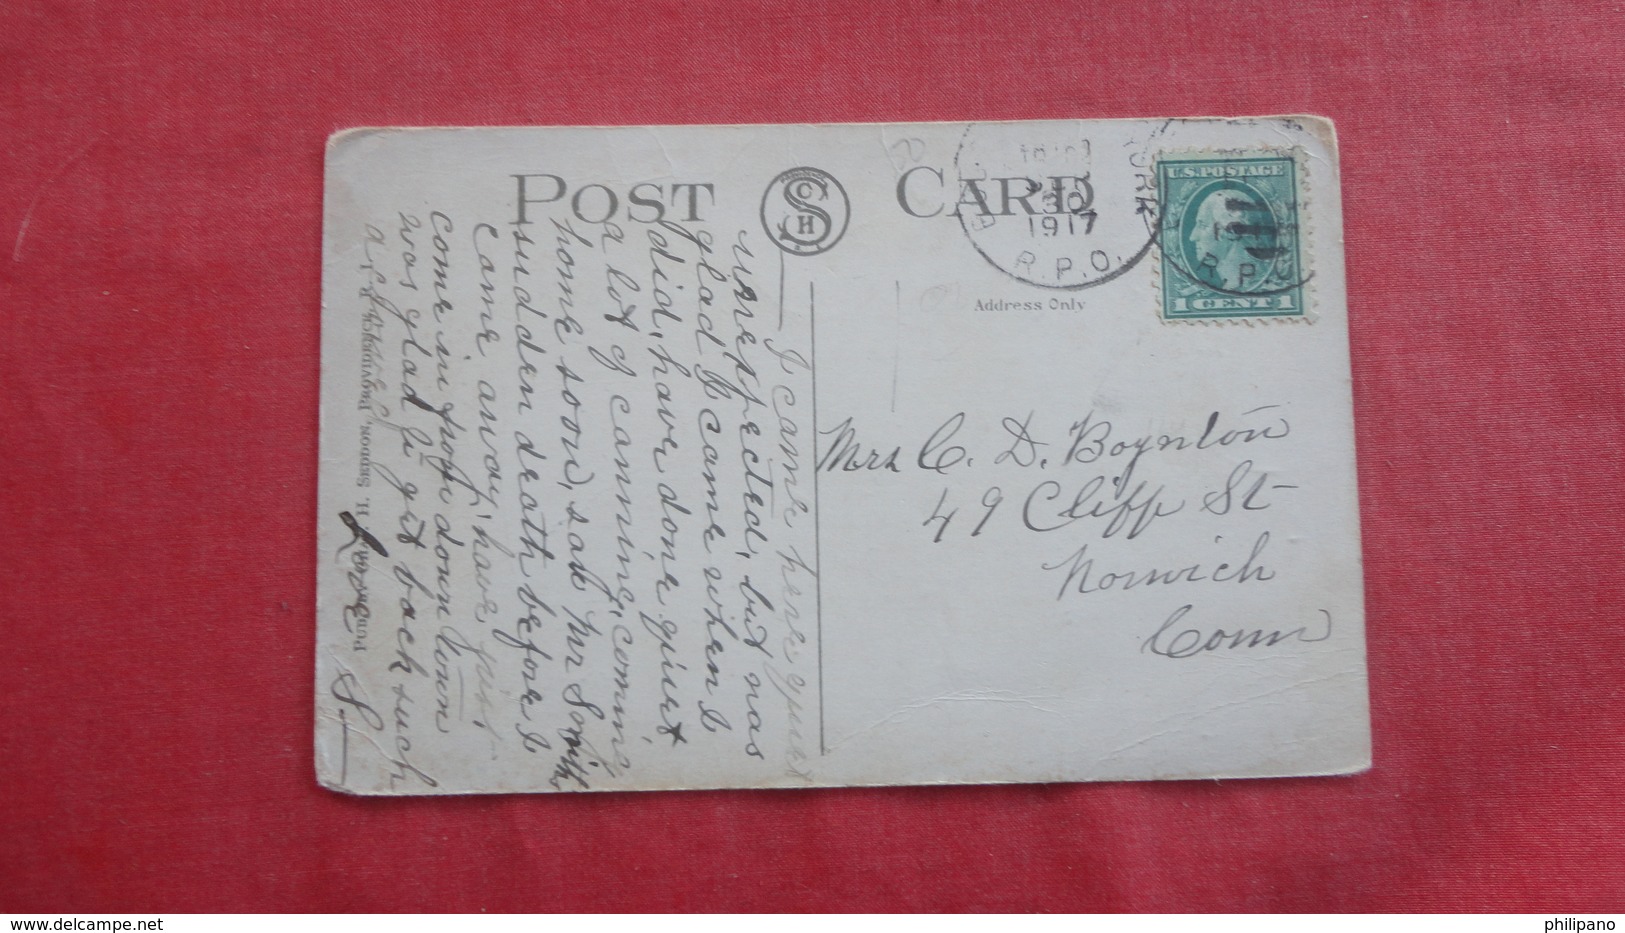 POST CARD
C
S
H
1917
R.P.O.
30
YORK
U.S. POSTAGE
1 CENT 1
R.P.O
Address Only
Mrs C. D. Boynton
49 Cliff St
Norwich
Conn
I came here quet
unexpected, but was
glad I came when I
did, have done quiet
a lot of canning, coming
home soon, sad Mr Smith
sudden death before I
came away, have just
come in from down town
was glad to get back such
a
Love S.
H. SEDDON, PROVIDENCE, R. I.
philipano